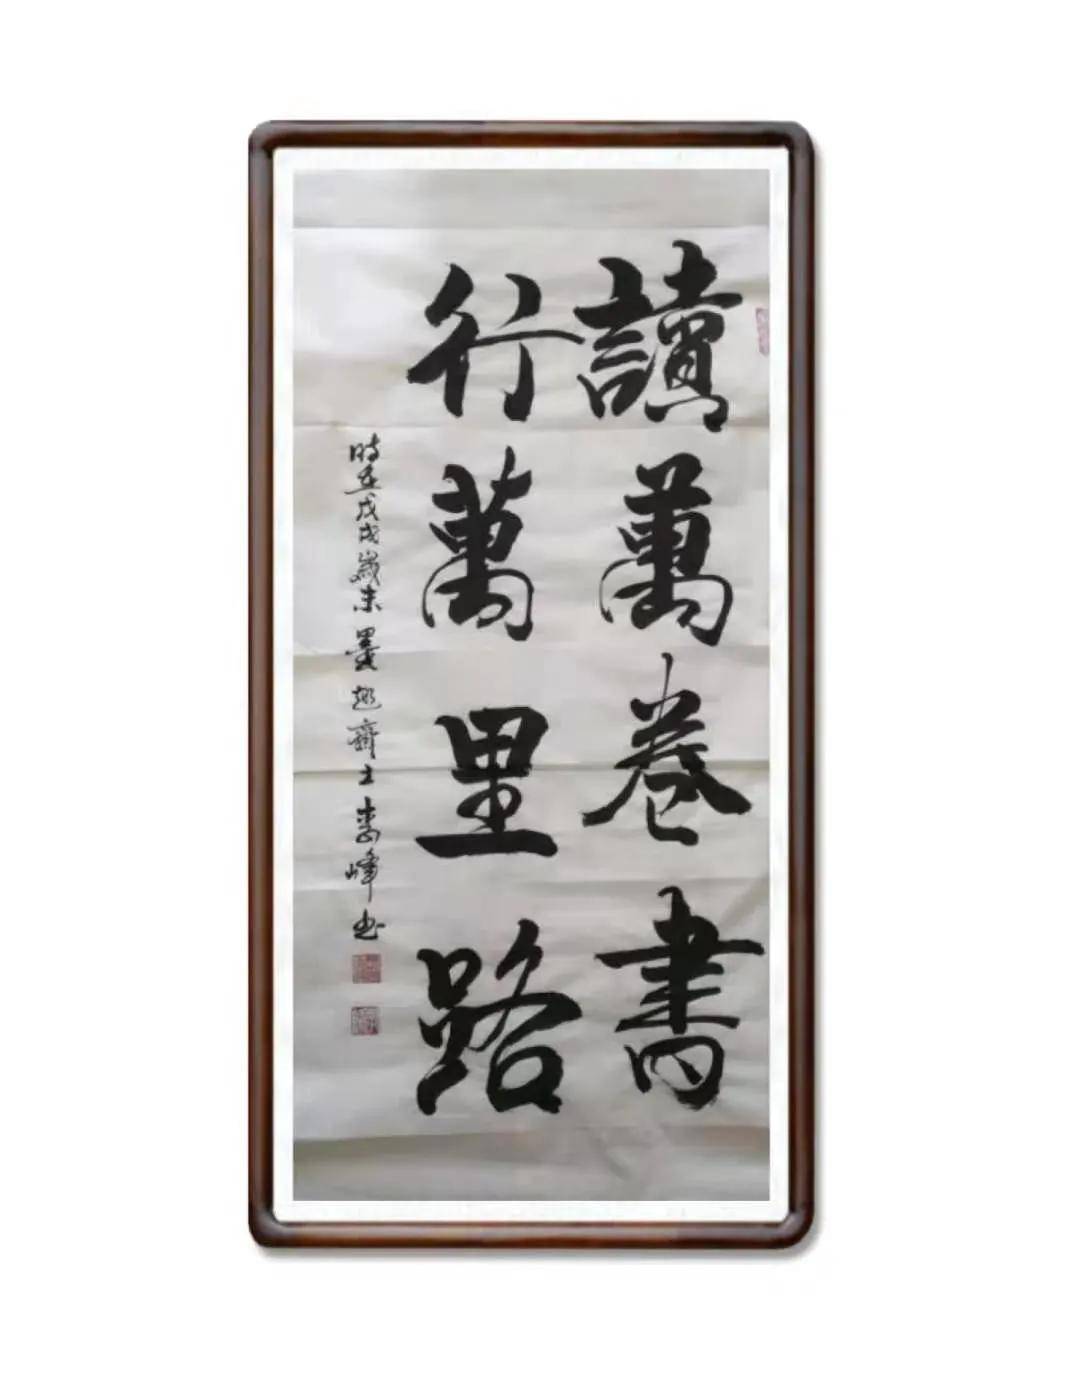 讀萬卷書
行萬里路
時在戊戌歲末墨趣齋主李峰书